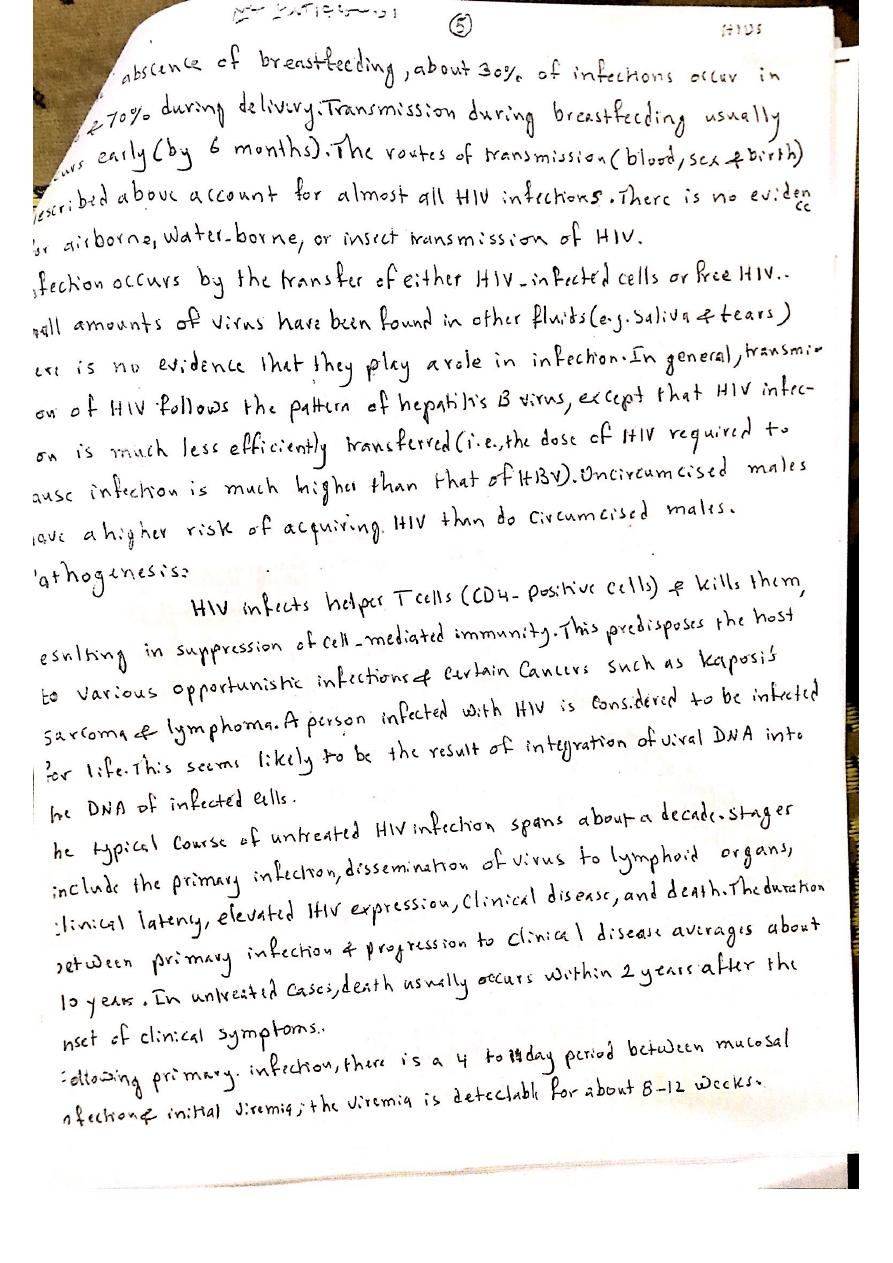 ⑤
AIDS
abscence of breastfeeding, about 30% of infections occur in
& 70% during delivery. Transmission during breastfeeding usually
urs early (by 6 months). The routes of transmission (blood, sex & birth)
escribed above account for almost all HIV infections. There is no evidence
or airborne, water-borne, or insect transmission of HIV.
fection occurs by the transfer of either HIV-infected cells or free HIV..
mall amounts of virus have been found in other fluids (e.g. Saliva & tears)
ere is no evidence that they play a role in infection. In general, transmi-
on of HIV follows the pattern of hepatitis B virus, except that HIV infec-
on is much less efficiently transferred (i.e., the dose of HIV required to
ause infection is much higher than that of HBV). Uncircumcised males
have a higher risk of acquiring HIV than do circumcised males.
athogenesis:
HIV infects helper T cells (CD4-positive cells) & kills them,
esulting in suppression of cell-mediated immunity. This predisposes the host
to various opportunistic infections & certain cancers such as kaposi's
sarcoma & lymphoma. A person infected with HIV is considered to be infected
for life. This seems likely to be the result of integration of viral DNA into
he DNA of infected cells.
he typical course of untreated HIV infection spans about a decade. stages
include the primary infection, dissemination of virus to lymphoid organs,
clinical latency, elevated HIV expression, clinical disease, and death. The duration
between primary infection & progression to clinical disease averages about
10 years. In untreated cases, death usually occurs within 2 years after the
nset of clinical symptoms..
following primary infection, there is a 4 to 11 day period between mucosal
nfection & initial viremia; the viremia is detectable for about 8-12 weeks.